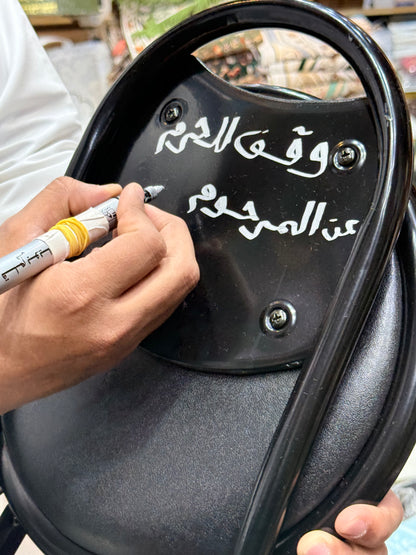 وقف للحرم
عن المرحوم